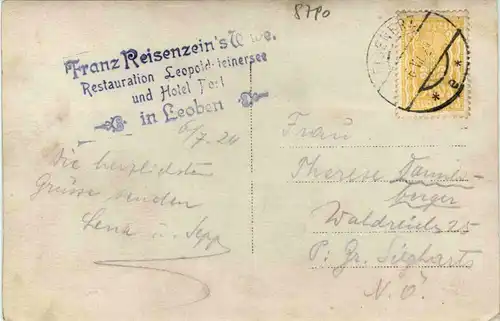 8790
EISENERZ
Franz Reisenzein's Wwe.
Restauration Leopoldsteinersee
und Hotel Post
in Leoben
6/7. 24
Die herzlichsten
Grüsse senden
Lena u. Sepp
Frau
Therese
berger
Waldreichs 25
P: Gr. Siegharts
N. Ö.